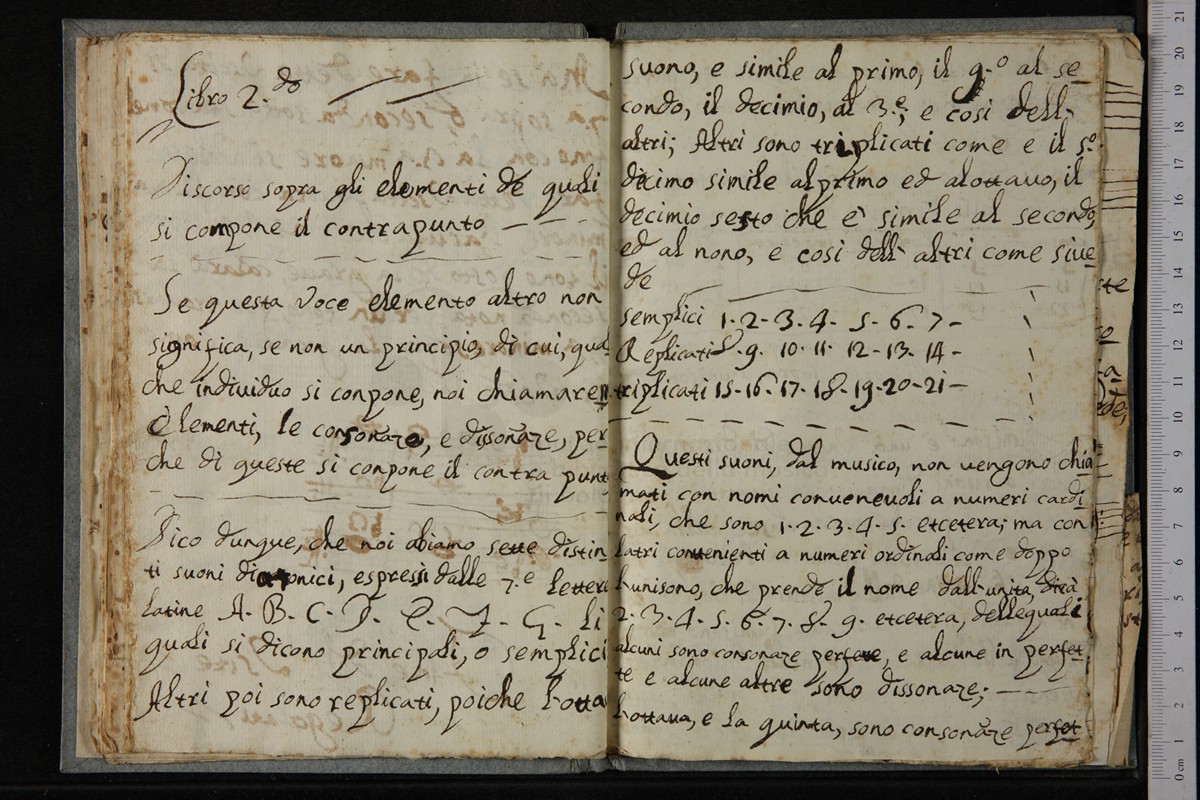 Libro 2.do
Discorso sopra gli elementi de quali
si compone il contrapunto —
Se questa voce elemento altro non
significa, se non un principio, di cui, qual
che individuo si conpone, noi chiamaren
Elementi, le consonaze, e dissonaze, per
che di queste si conpone il contra punt
Dico dunque, che noi abiamo sette distin
ti suoni diatonici, espressi dalle 7.e lettere
latine A. B. C. D. E. F. G. li
quali si dicono principali, o semplici
Altri poi sono replicati, poiche l'otta
suono, e simile al primo, il 9.o al se
condo, il decimio, al 3.e; e cosi dell'
altri; Altri sono triplicati come e il 5.o
decimo simile al primo ed alottavo, il
decimio sesto che e' simile al secondo,
ed al nono, e cosi dell' altri come sive
de
semplici 1-2-3-4-5-6-7-
Replicati 8-9-10-11-12-13-14-
triplicati 15-16-17-18-19-20-21-
Questi suoni, dal musico, non vengono chia
mati con nomi convenevoli a numeri cardi
nali, che sono 1-2-3-4-5. etcetera; ma con
l'atri convenienti a numeri ordinali come doppo
l'unisono, che prende il nome dall'unita, dirà
2-3-4-5-6-7-8-9. etcetera, delle quali
alcuni sono consonaze perfete, e alcune in perfet
te e alcune altre sono dissonaze; —
l'ottava, e la quinta, sono consonaze perfet